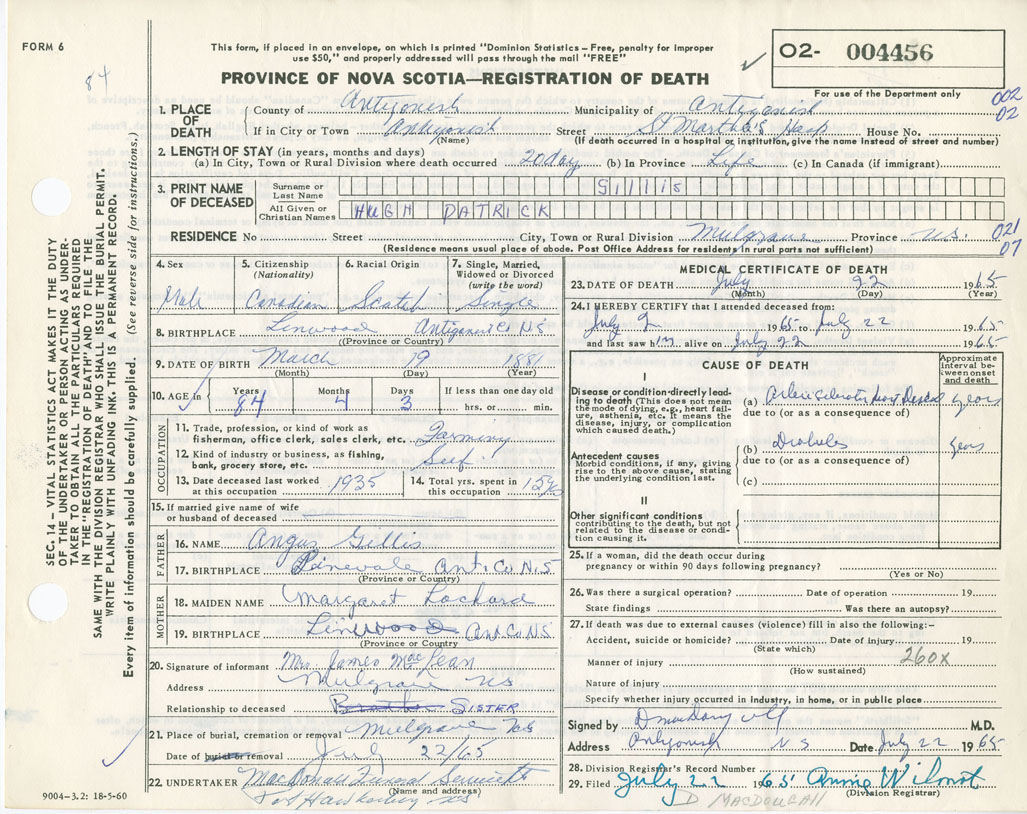 FORM 6
84
This form, if placed in an envelope, on which is printed "Dominion Statistics—Free, penalty for improper
use $50," and properly addressed will pass through the mail "FREE"
PROVINCE OF NOVA SCOTIA—REGISTRATION OF DEATH
✓ O2- 004456
For use of the Department only
002
02
1. PLACE OF DEATH County of Antigonish Municipality of Antigonish
If in City or Town Antigonish (Name) Street St Martha's Hosp House No.
(If death occurred in a hospital or institution, give the name instead of street and number)
2. LENGTH OF STAY (in years, months and days)
(a) In City, Town or Rural Division where death occurred 20 day (b) In Province Life (c) In Canada (if immigrant)
3. PRINT NAME OF DECEASED
Surname or Last Name Gillis
All Given or Christian Names HUGH PATRICK
RESIDENCE No Street City, Town or Rural Division Mulgrave Province N.S. 021
07
(Residence means usual place of abode. Post Office Address for residents in rural parts not sufficient)
4. Sex Male
5. Citizenship (Nationality) Canadian
6. Racial Origin Scotch
7. Single, Married, Widowed or Divorced (write the word) Single
8. BIRTHPLACE Linwood Antigonish Co NS
(Province or Country)
9. DATE OF BIRTH March 19 1881
(Month) (Day) (Year)
10. AGE in Years 84 Months 4 Days 3 If less than one day old hrs. or min.
OCCUPATION
11. Trade, profession, or kind of work as
fisherman, office clerk, sales clerk, etc. Farming
12. Kind of industry or business, as fishing,
bank, grocery store, etc. Self
13. Date deceased last worked at this occupation 1935
14. Total yrs. spent in this occupation 15 yrs
15. If married give name of wife
or husband of deceased
FATHER
16. NAME Angus Gillis
17. BIRTHPLACE Pinevale Ant. Co N.S
(Province or Country)
MOTHER
18. MAIDEN NAME Margaret
19. BIRTHPLACE Linwood Ant Co NS
(Province or Country)
20. Signature of informant Mrs James MacLean
Address Mulgrave NS
Relationship to deceased Brother SISTER
21. Place of burial, cremation or removal Mulgrave
Date of burial or removal 22/65
22. UNDERTAKER MacDonald Funeral
(Name and address)
Port Hawkesbury NS
9004-3.2: 18-5-60
MEDICAL CERTIFICATE OF DEATH
23. DATE OF DEATH July 22 1965
(Month) (Day) (Year)
24. I HEREBY CERTIFY that I attended deceased from:
July 2 1965 to July 22 1965
and last saw him alive on July 22 1965
CAUSE OF DEATH
Approximate interval between onset and death
I
Disease or condition directly leading to death (This does not mean
the mode of dying, e.g., heart failure, asthenia, etc. It means the
disease, injury, or complication
which caused death.)
(a) Heart Disease years
due to (or as a consequence of)
Antecedent causes
Morbid conditions, if any, giving
rise to the above cause, stating
the underlying condition last.
(b) Diabetes years
due to (or as a consequence of)
(c)
II
Other significant conditions
contributing to the death, but not
related to the disease or condition causing it.
25. If a woman, did the death occur during
pregnancy or within 90 days following pregnancy?
(Yes or No)
26. Was there a surgical operation? Date of operation 19
State findings Was there an autopsy?
27. If death was due to external causes (violence) fill in also the following:-
Accident, suicide or homicide? Date of injury 19
(State which)
Manner of injury 260X
(How sustained)
Nature of injury
Specify whether injury occurred in industry, in home, or in public place
Signed by M.D.
Address Antigonish N S Date July 22 1965
28. Division Registrar's Record Number
29. Filed July 22 1965 Annie
(Division Registrar)
D MACDOUGALL
SEC. 14 – VITAL STATISTICS ACT MAKES IT THE DUTY
OF THE UNDERTAKER OR PERSON ACTING AS UNDER-
TAKER TO OBTAIN ALL THE PARTICULARS REQUIRED
IN THE "REGISTRATION OF DEATH" AND TO FILE THE
SAME WITH THE DIVISION REGISTRAR WHO SHALL ISSUE THE BURIAL PERMIT.
WRITE PLAINLY WITH UNFADING INK. THIS IS A PERMANENT RECORD.
Every item of information should be carefully supplied. (See reverse side for instructions.)